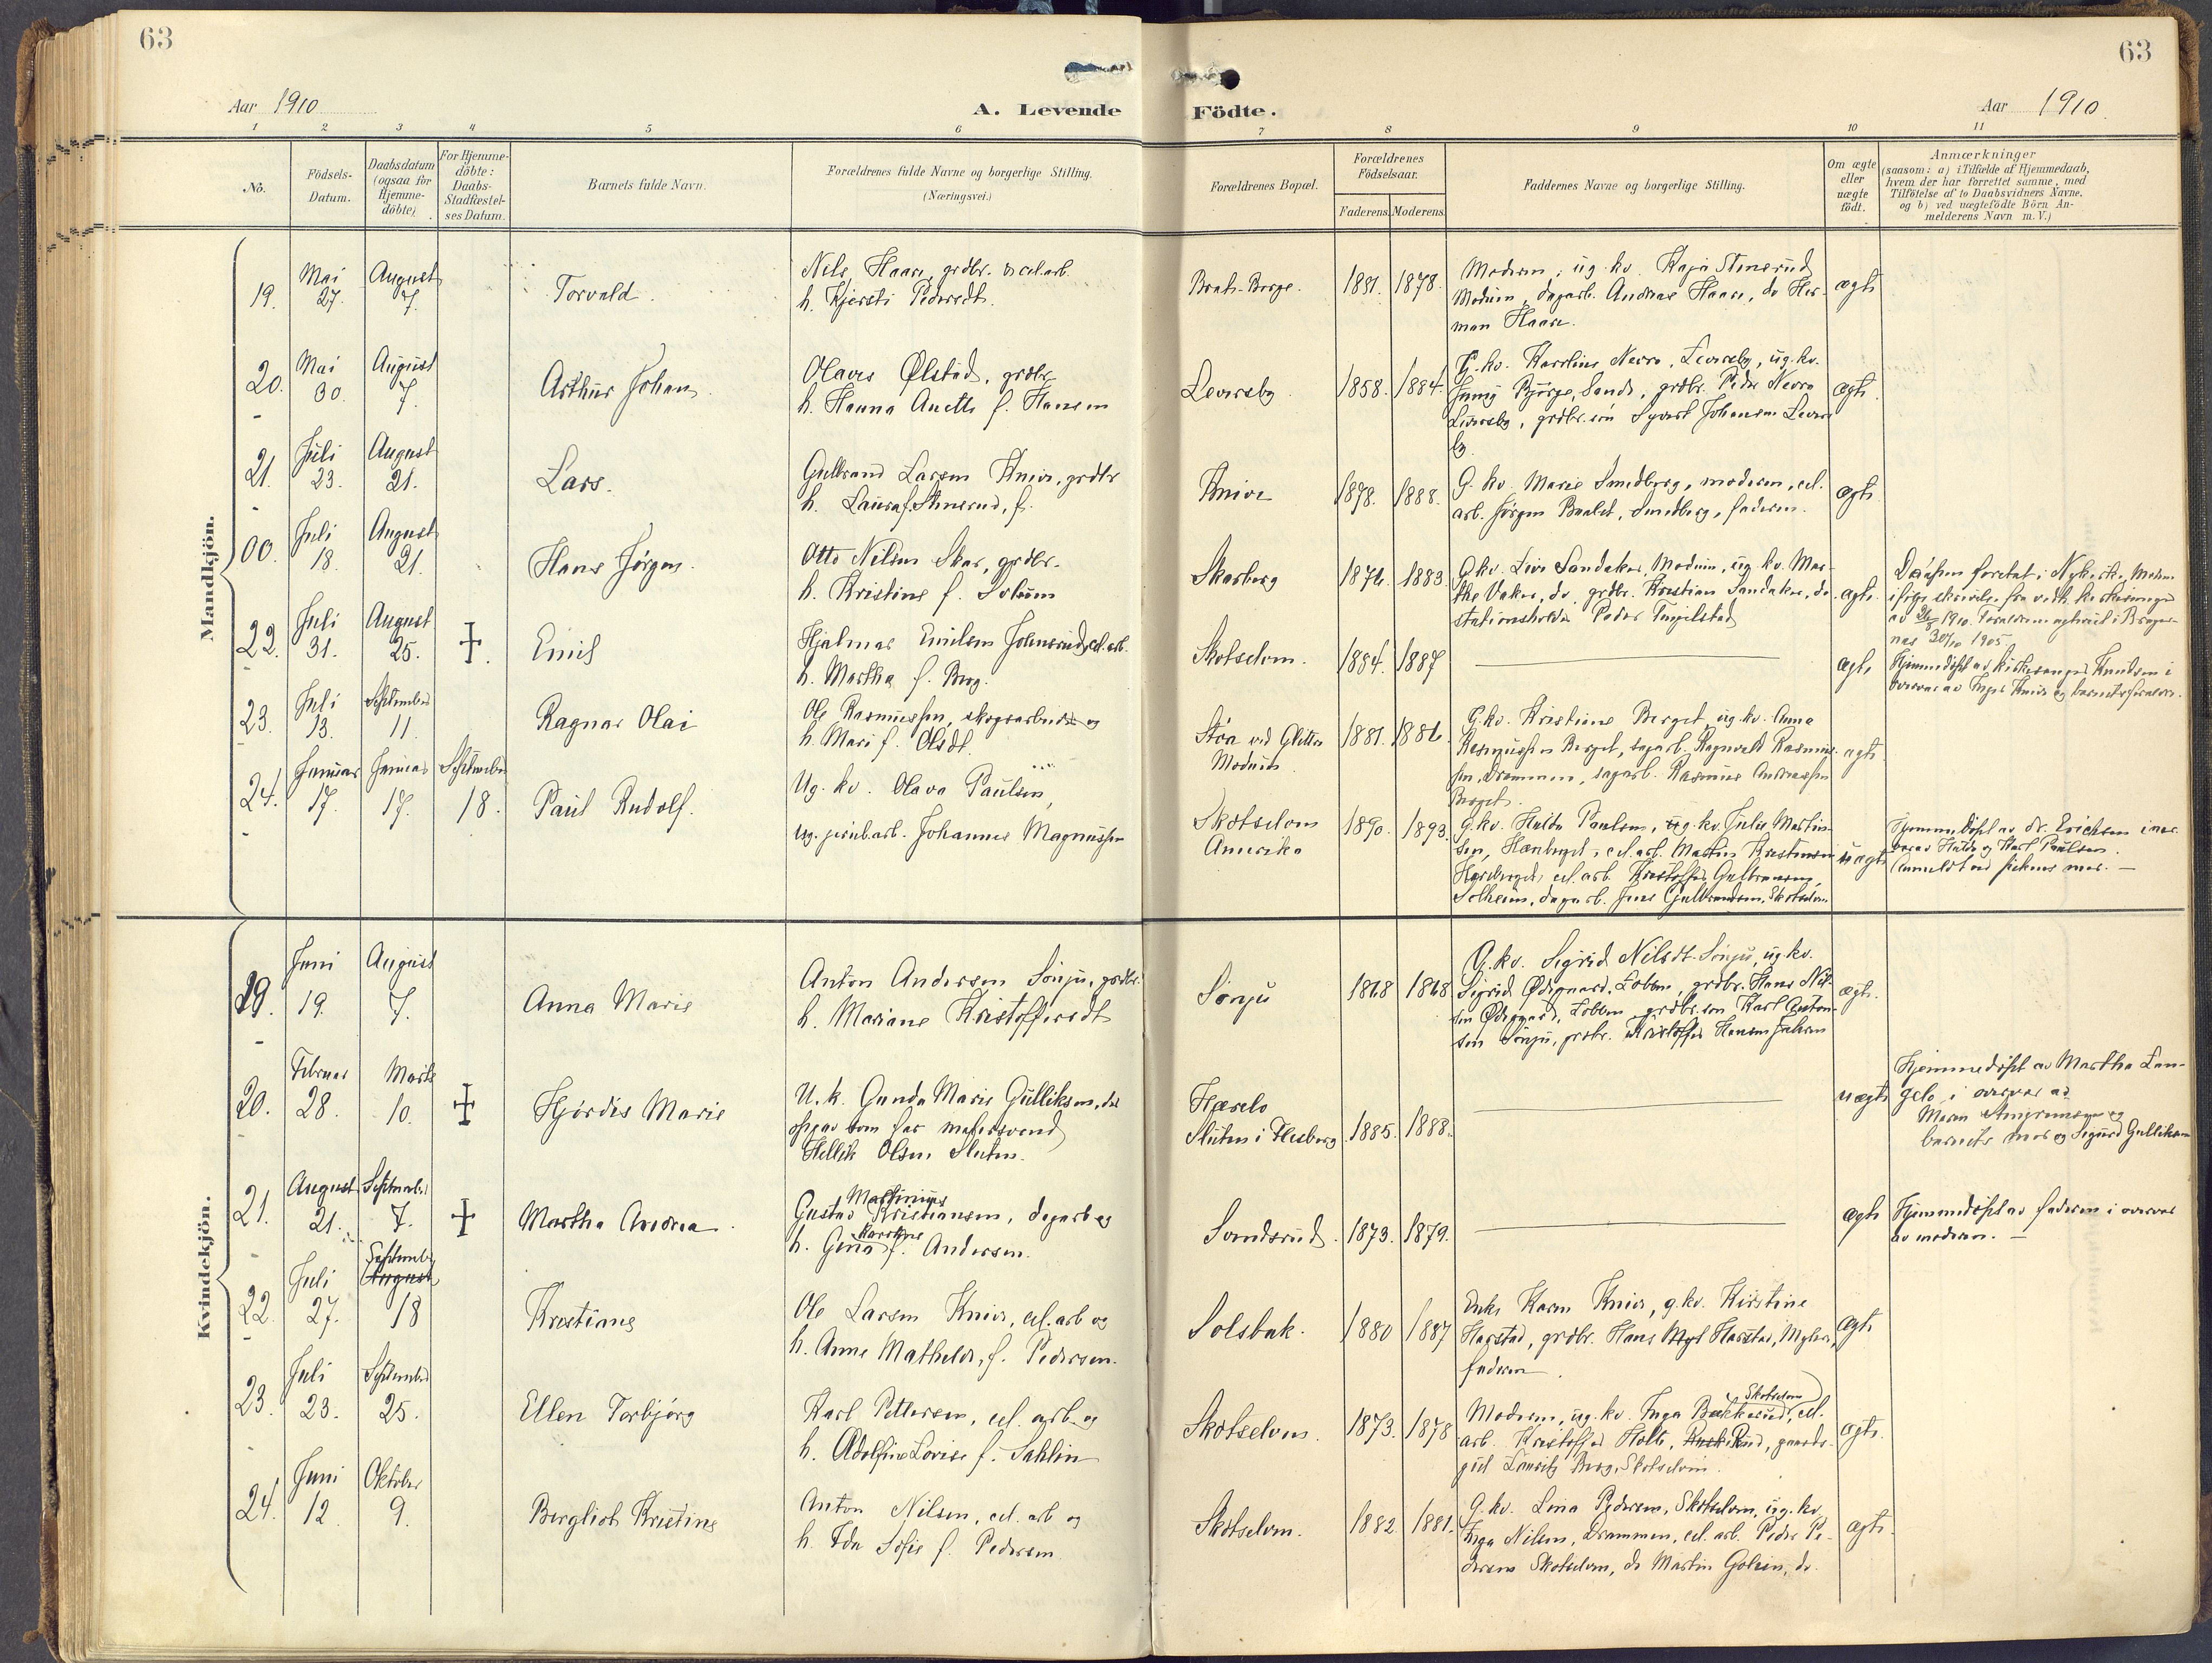 63
63
Aar 1910
A. Levende
Födte.
Aar 1910
1 2 3 4 5 6 7 8 9 10 11
No.
Födsels-
Datum.
Daabsdatum
(ogsaa for
Hjemme-
döbte)
For Hjemme-
döbte:
Daabs-
Stadfæstel-
ses Datum.
Barnets fulde Navn.
Forældrenes fulde Navne og borgerlige Stilling.
(Næringsvei.)
Forældrenes Bopæl.
Forældrenes
Födselsaar.
Faderens. Moderens.
Faddernes Navne og borgerlige Stilling.
Om ægte
eller
uægte
födt.
Anmærkninger
(saasom: a) i Tilfælde af Hjemmedaab,
hvem der har forrettet samme, med
Tilföielse af to Daabsvidners Navne,
og b) ved uægtefödte Börn An-
melderens Navn m. V.)
Mandkjön.
19.
Mai
27.
August
7.
Torvald.
Nils Haare, grdbr.
h. Kjersti Pedersdt.
1881. 1878.
Moderen, ug. kv. Kaja Stenerud
Modum, dagarb. Andreas Haare, do Her-
man Haare.
ægte
20.
Mai
30.
August
7.
Arthur Johan
Olaves Ølstad, grdbr
h. Hanna Anette f. Hansen
Leversby
1858. 1884.
G. kv. Karoline Nerro, Leversby, ug. kv.
Sande, grdbr. Peder Nerro
Leversby, grdbr. søn Syvert Johansen Levers
by
ægte.
21.
Juli
23.
August
21.
Lars.
Gulbrand Larsen Knive, grdbr
h. Laura f. Stenerud, f.
Knive
1878. 1888.
G. kv. Marie Smedberg, moderen, cel.
arb. Jørgen Smedberg, faderen.
ægte
00.
Juli
18.
August
21.
Hans Jørgen.
Otto Nilsen Skar, grdbr.
h. Kristine f. Solum
Skarberg
1876. 1883.
G. kv. Live Sandaker, Modum, ug. kv. Mar-
the Vaker, do, grdbr. Kristian Sandaker, do.
stationsholder Peder
ægte.
Daapen foretat i Nykirke, Modum
ifølge skrivelse fra vedk. kirkesanger
1910.
nes 30/10 1905
22.
Juli
31.
August
25.
†.
Emil
Hjalmar Emilsen Johnsrud, cel. arb.
h. Martha f. Berg.
Skotselven.
1884. 1887
ægte
Hjemmedøpt av kirkesanger Knudsen i
overvær av Inger Knive og barnets forældre.
23.
Juli
13.
September
11.
Ragnar Olai
Ole Rasmussen, skogsarbeider og
h. Mari f. Olsdt.
Modum
1881. 1886.
G. kv. Kristiane Berget, ug. kv. Anna
Rasmussen Berget, sagarb. Ragnvald Rasmus-
sen, Drammen, sagarb. Rasmus Andreassen
Berget.
ægte.
24.
Januar
17.
Januar
17.
September
18.
Paul Rudolf.
Ug. kv. Olava Paulsen,
ug. jernb.arb. Johannes Magnussen
Skotselven
Amerika
1890. 1893.
G. kv. Hulda Paulsen, ug. kv. Julie Martin-
sen, cel. arb. Martin Kristensen
cel. arb. Kristoffer Gulbransen,
Solheim, dagarb. Jens Gulbrandsen, Skotselven
uægte
Hjemmedøpt av dr. Erichsen i nær-
vær av Hulda og Karl Paulsen.
Anmeldt av pikens mor. —
Kvindekjön.
19.
Juni
19.
August
7.
Anna Marie
Anton Andersen Sønju, grdbr.
h. Mariane Kristoffersdt
Sønju
1868 1868
G. kv. Sigrid Nilsdt. Sønju, ug. kv.
Sigrid Ødegaard, Lobben, grdbr. Hans Nil-
sen Ødegaard, Lobben, grdbr. søn Karl Anton-
sen Sønju, grdbr. Kristoffer Hansen
ægte.
20.
Februar
28.
Marts
10.
†
Hjørdis Marie
U. k. Gunda Marie Gulliksen, der
opgav som far
Hellik Olsen Sluten.
Hærelo
Sluten i Flesberg
1885. 1888.
uægte
Hjemmedøpt av Martha Lan-
gelo i overvær av
barnets mor og Sigurd Gulliksen
21.
August
21.
September
7.
†
Martha Andrea.
Martinius
Gustav Kristiansen, dagarb og
Karoline
h. Gina f. Andersen.
Sandsrud.
1873. 1879.
ægte
Hjemmedøpt av faderen i overvær
av moderen. —
22.
Juli
27.
September
August
18
Kristiane
Ole Larsen Knive, cel. arb og
h. Anne Mathilde, f. Pedersen.
Solsbak.
1880 1887
Enke Karen Knive, g. kv. Kirstine
Harstad, grdbr. Hans Harstad,
faderen.
ægte
23.
Juli
23.
September
25.
Ellen Torbjørg
Karl Pettersen, cel. arb. og
h. Adolfine Lovise f. Sahlin
Skotselven.
1873. 1878
Skotselven
Moderen, ug. kv. Inga Bakkerud, cel.
arb. Kristoffer Holte, Rud, gaards-
gut Lauritz Berg, Skotselven.
ægte.
24.
Juni
12
Oktober
9.
Bergliot Kristine
Anton Nilsen, cel. arb og
h. Ida Sofie f. Pedersen
Skotselven.
1882. 1881.
G. kv. Lina Pedersen, Skotselven, ug. kv.
Inga Nilsen, Drammen, cel. arb. Peder Pe-
dersen Skotselven, do Martin Golsen, do.
ægte.